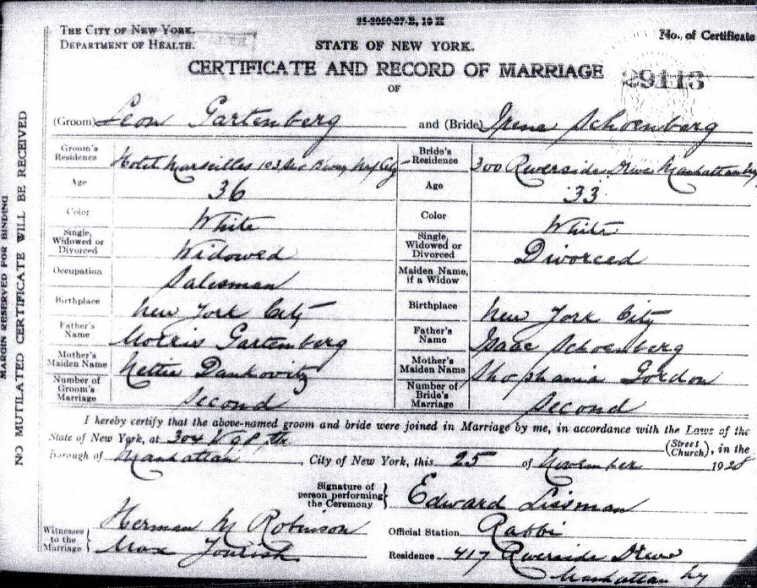 25-2050-27-B, 19 H
THE CITY OF NEW YORK. No. of Certificate
DEPARTMENT OF HEALTH.
STATE OF NEW YORK.
CERTIFICATE AND RECORD OF MARRIAGE
29113
OF
(Groom) Leon Gartenberg and (Bride) Irene Schoenberg
Groom's Residence Hotel Marseilles 103 St & Bway NY City Bride's Residence 300 Riverside Drive Manhattan
Age 36 Age 33
Color White Color White
Single, Widowed or Divorced Widowed Single, Widowed or Divorced Divorced
Occupation Salesman Maiden Name, if a Widow
Birthplace New York City Birthplace New York City
Father's Name Morris Gartenberg Father's Name Isaac Schoenberg
Mother's Maiden Name Nettie Dankovitz Mother's Maiden Name Gordon
Number of Groom's Marriage Second Number of Bride's Marriage Second
I hereby certify that the above-named groom and bride were joined in Marriage by me, in accordance with the Laws of the
State of New York, at 304 (Street Church), in the
Borough of Manhattan, City of New York, this 25 of November 1928
Signature of person performing the Ceremony Edward Lissman
Witnesses to the Marriage Herman M Robinson Official Station Rabbi
Max Residence 417 Riverside Drive
Manhattan Ny
MARGIN RESERVED FOR BINDING
NO MUTILATED CERTIFICATE WILL BE RECEIVED